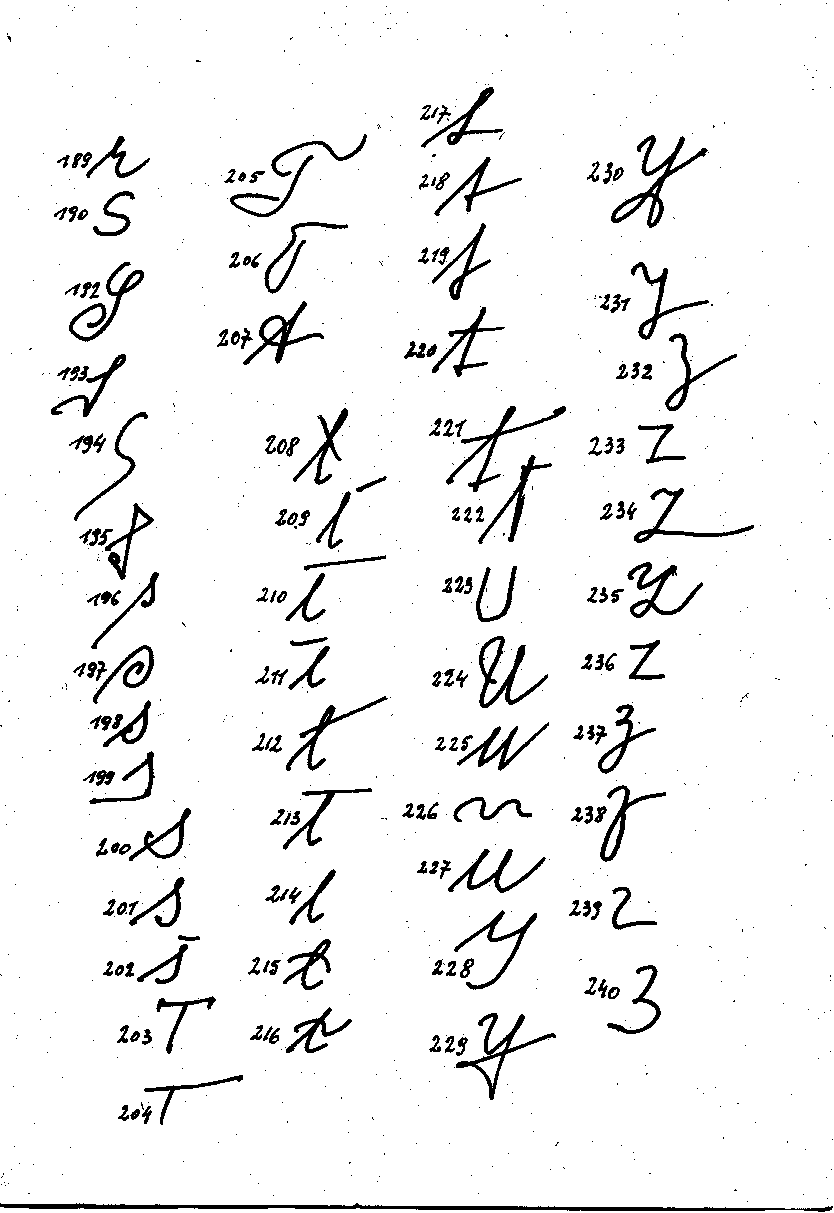 189 r
190 S
192 S
193 S
194 S
195
196 s
197 s
198 s
199 s
200 s
201 s
202 s
203 T
204 T
205 T
206 T
207
208 t
209 t
210 t
211 t
212 t
213 t
214 t
215 t
216 t
217
218 t
219
220 t
221 t
222 t
223 U
224 U
225 u
226
227 u
228 y
229 y
230 y
231 y
232 z
233 Z
234 Z
235
236 Z
237 z
238 z
239 z
240 z